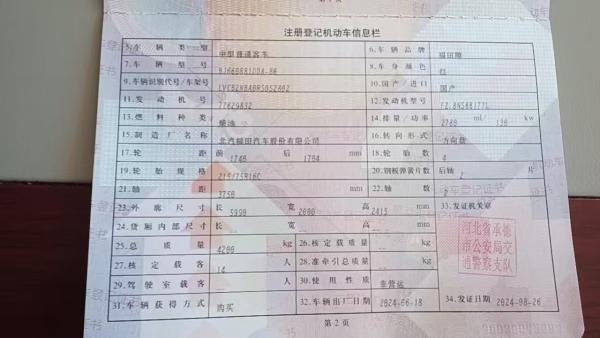 注册登记机动车信息栏
5.车辆类型 中型普通客车 6.车辆品牌 福田牌
7.车辆型号 8.车身颜色 红
9.车辆识别代号/车架号 10.国产/进口 国产
11.发动机号 77629832 12.发动机型号
13.燃料种类 柴油 14.排量/功率 ml/ kw
15.制造厂名称 北汽福田汽车股份有限公司 16.转向形式 方向盘
17.轮距 前 1740 后 1704 mm 18.轮胎数 4
19.轮胎规格 215/75R16C 20.钢板弹簧片数 后轴 片
21.轴距 3750 mm 22.轴数 2
23.外廓尺寸 长 5990 宽 2000 高 2415 mm 33.发证机关章
24.货厢内部尺寸 长 宽 高 mm
25.总质量 4200 kg 26.核定载质量 -- kg
27.核定载客 14 人 28.准牵引总质量 -- kg
29.驾驶室载客 -- 人 30.使用性质 非营运
31.车辆获得方式 购买 32.车辆出厂日期 2024-06-18 34.发证日期 2024-08-26
河北省承德
市公安局交
通警察支队
第2页